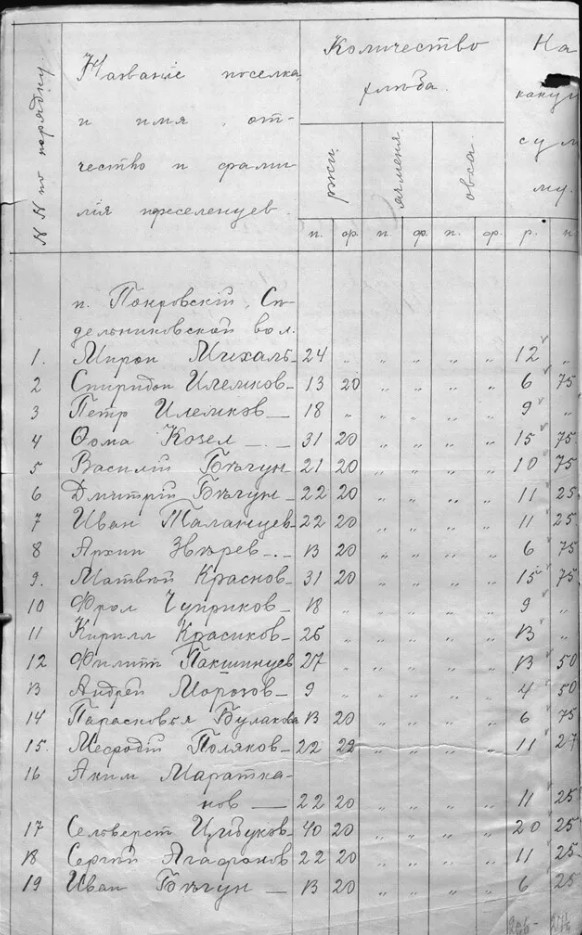 N N по порядку.
Названіе поселка
и имя, от-
чество и фами-
лія переселенцев.
Количество
хлѣба.
ржи. ячменя овса.
п. ф. п. ф. п. ф.
На
какую
сум-
му.
р. к.
п. Покровскій, Си-
дельниковской вол.
1. Мирон Михаль- 24 " " " " " 12 "
2 Спиридон Илемков- 13 20 " " " " 6 75
3 Петр Илемков — 18 " " " " " 9 "
4 Ѳома Козел — 31 20 " " " " 15 75
5 Василій Бѣгун- 21 20 " " " " 10 75
6 Дмитрій Бѣгун- 22 20 " " " " 11 25
7 Иван Таланцев- 22 20 " " " " 11 25
8 Архип Звѣрев- 13 20 " " " " 6 75
9. Матвѣй Краснов- 31 20 " " " " 15 75
10 Фрол Чуприков- 18 " " " " " 9 "
11 Кирилл Красиков- 26 " " " " " 13 "
12 Филипп Пакшинцев 27 " " " " " 13 50
13 Андрей Морозов- 9 " " " " " 4 50
14 Парасковья 13 20 " " " " 6 75
15. Мефодій Поляков- 22 22 " " " " 11 27
16 Аким Маратка-
нов — 22 20 " " " " 11 25
17 Селоверст Цибуков- 40 20 " " " " 20 25
18 Сергѣй Агафонов 22 20 " " " " 11 25
19 Иван Бѣгун — 13 20 " " " " 6 25